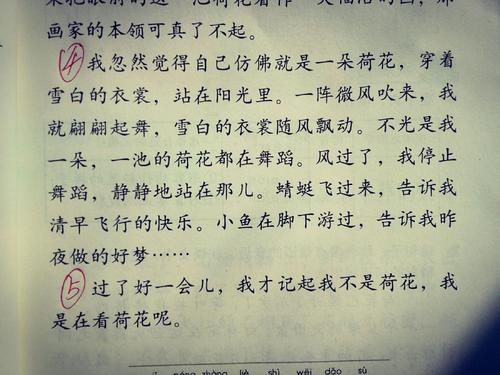 画家的本领可真了不起。
④我忽然觉得自己仿佛就是一朵荷花，穿着
雪白的衣裳，站在阳光里。一阵微风吹来，我
就翩翩起舞，雪白的衣裳随风飘动。不光是我
一朵，一池的荷花都在舞蹈。风过了，我停止
舞蹈，静静地站在那儿。蜻蜓飞过来，告诉我
清早飞行的快乐。小鱼在脚下游过，告诉我昨
夜做的好梦……
⑤过了好一会儿，我才记起我不是荷花，我
是在看荷花呢。